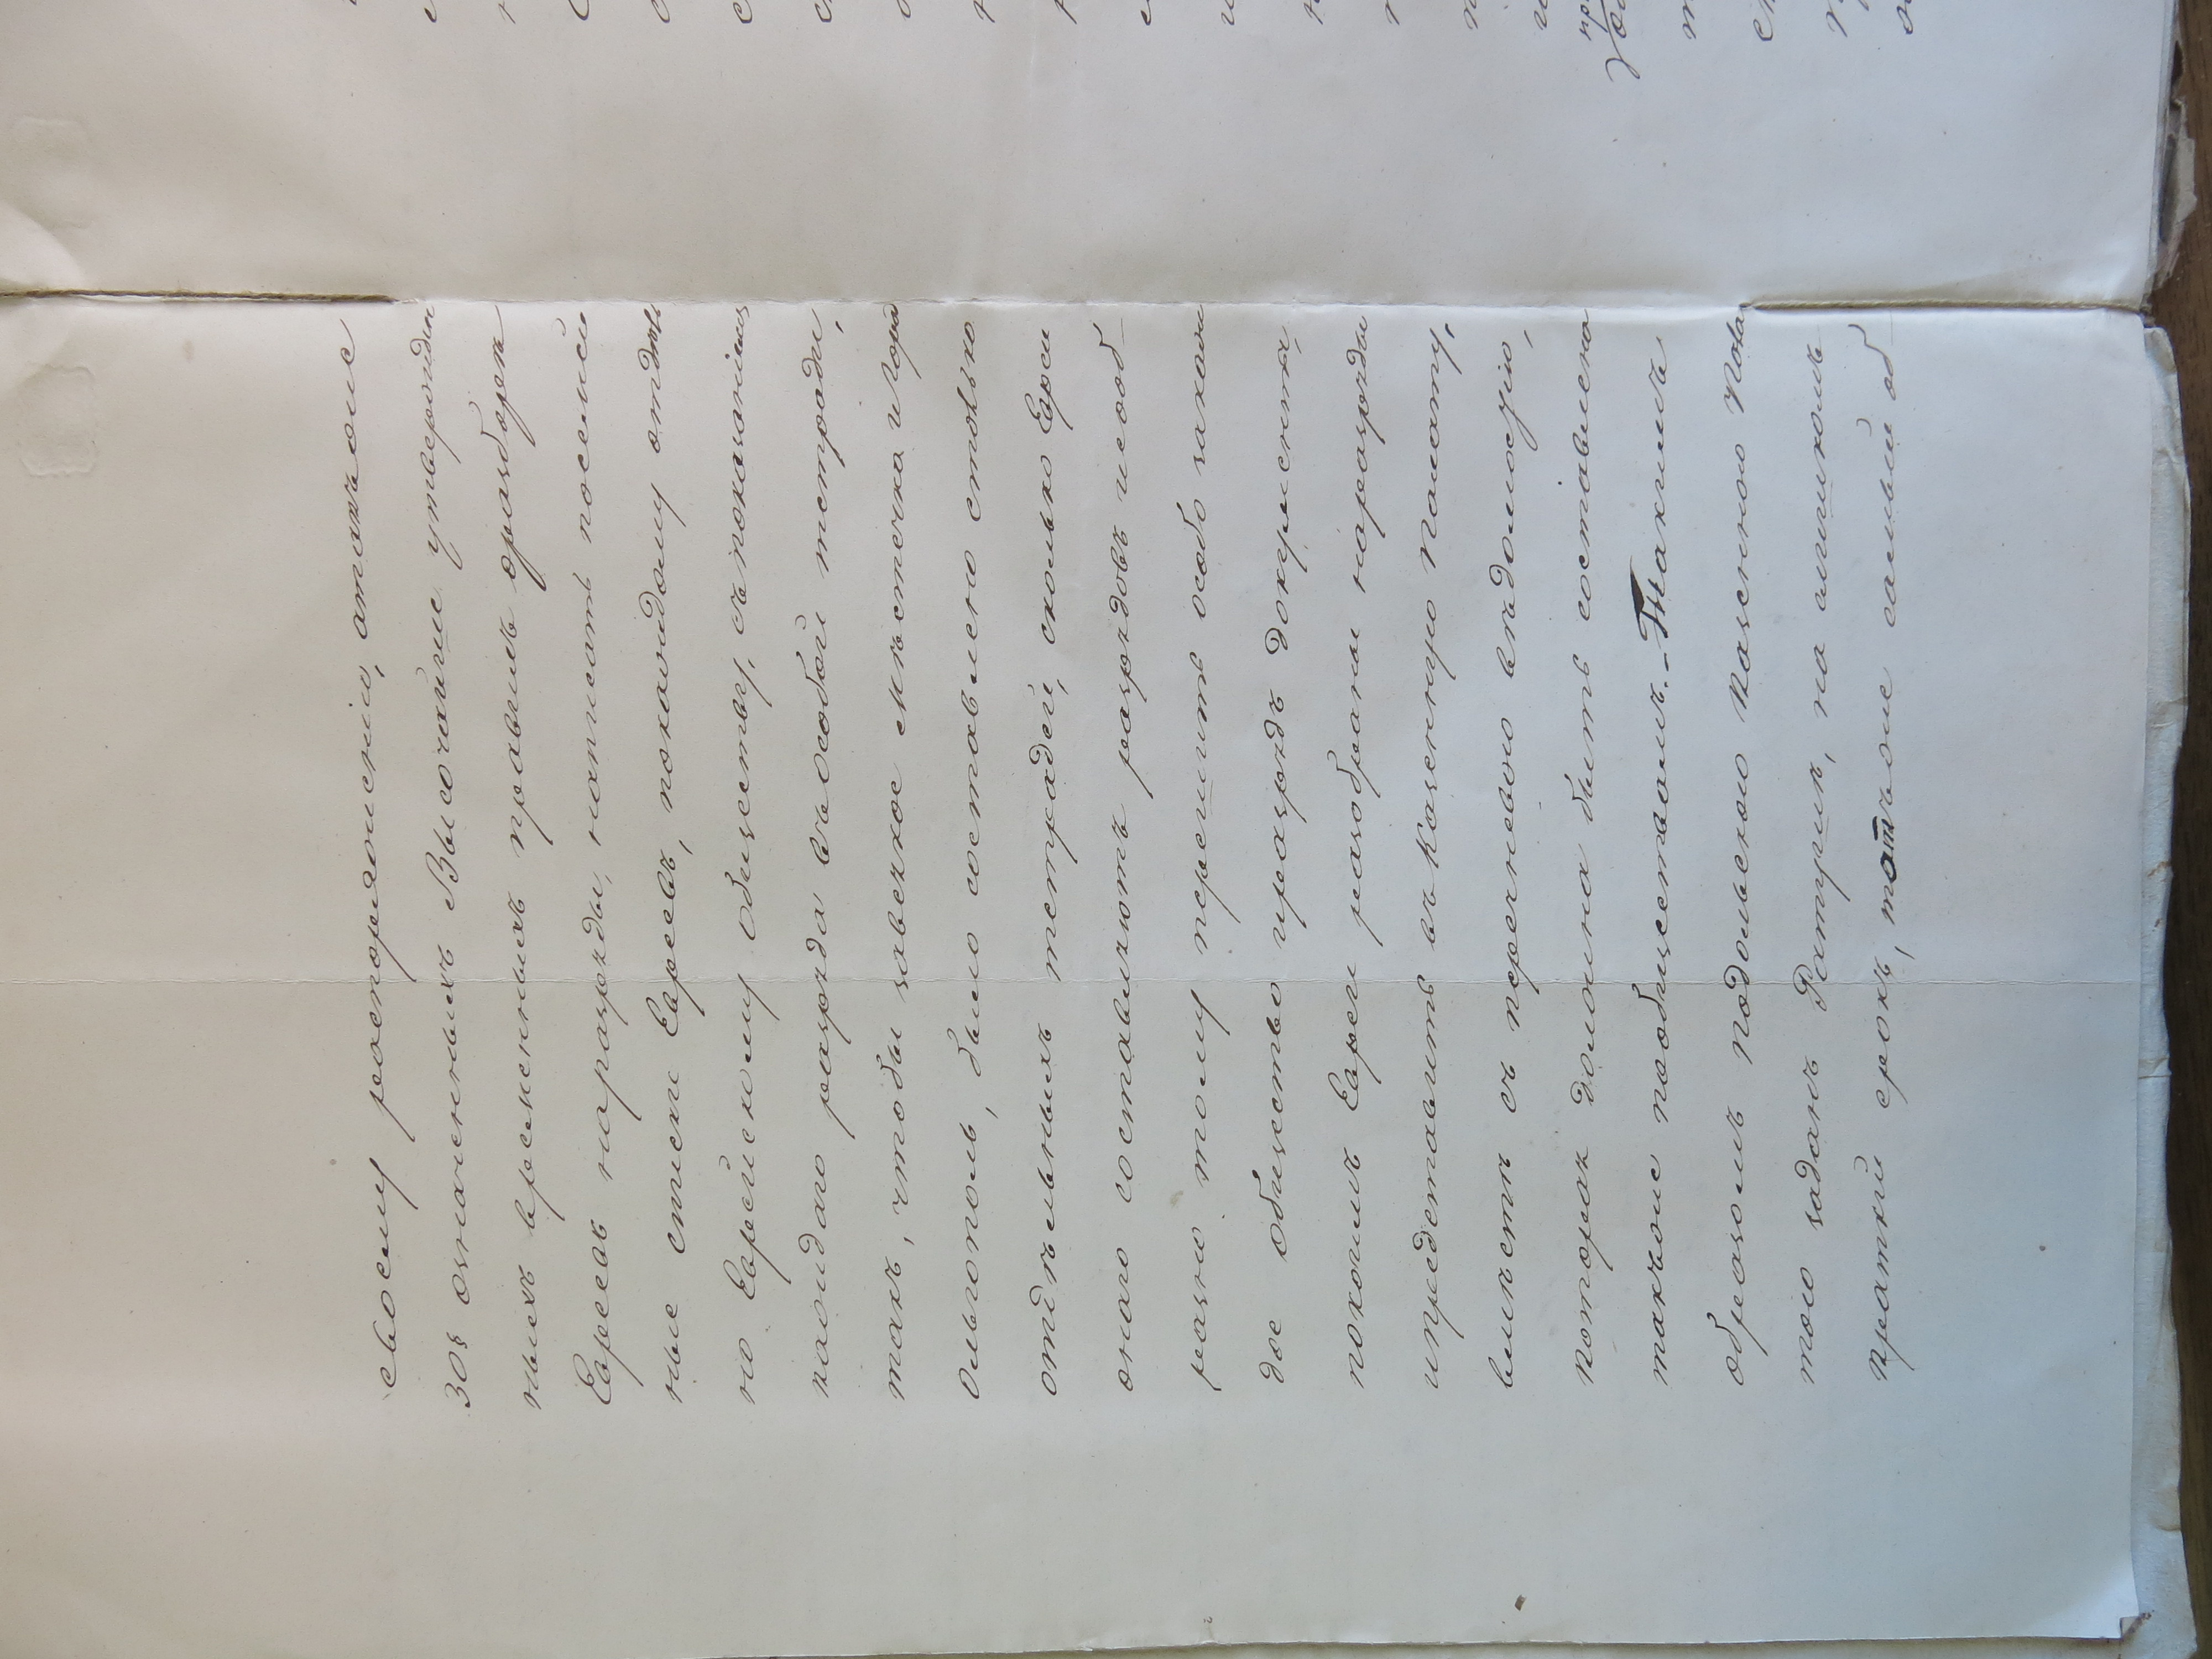 своему распоряженію, атакъже
303 означенныхъ Высочайше утвержден
ныхъ временныхъ правилъ оразборѣ
Евреевъ наразряды, написать посемей
ные списки Евреевъ, покаждому отдѣль
но Еврейскому обществу, съ показаніемъ
каждаго разряда въ особой тетради,
такъ, чтобы заверхое Мѣстечка и Город
Ольгополь, было составлено столько
отдѣльныхъ тетрадей, сколько Евреи
онаго составляютъ разрядовъ и соб
разно тому перешить особо закаж
дое общество иразрядъ документы,
покоимъ Евреи разобраны наразряды
ипредставить въ Казенную Палату,
вмѣстѣ съ перечневою вѣдомостію,
которая должна быть составлена
такъже пообществамъ. – Такимъ
образомъ Подольскою Казенною Пала
тою заданъ Ратушѣ, на слишкомъ
краткій срокъ, тотъже самый об